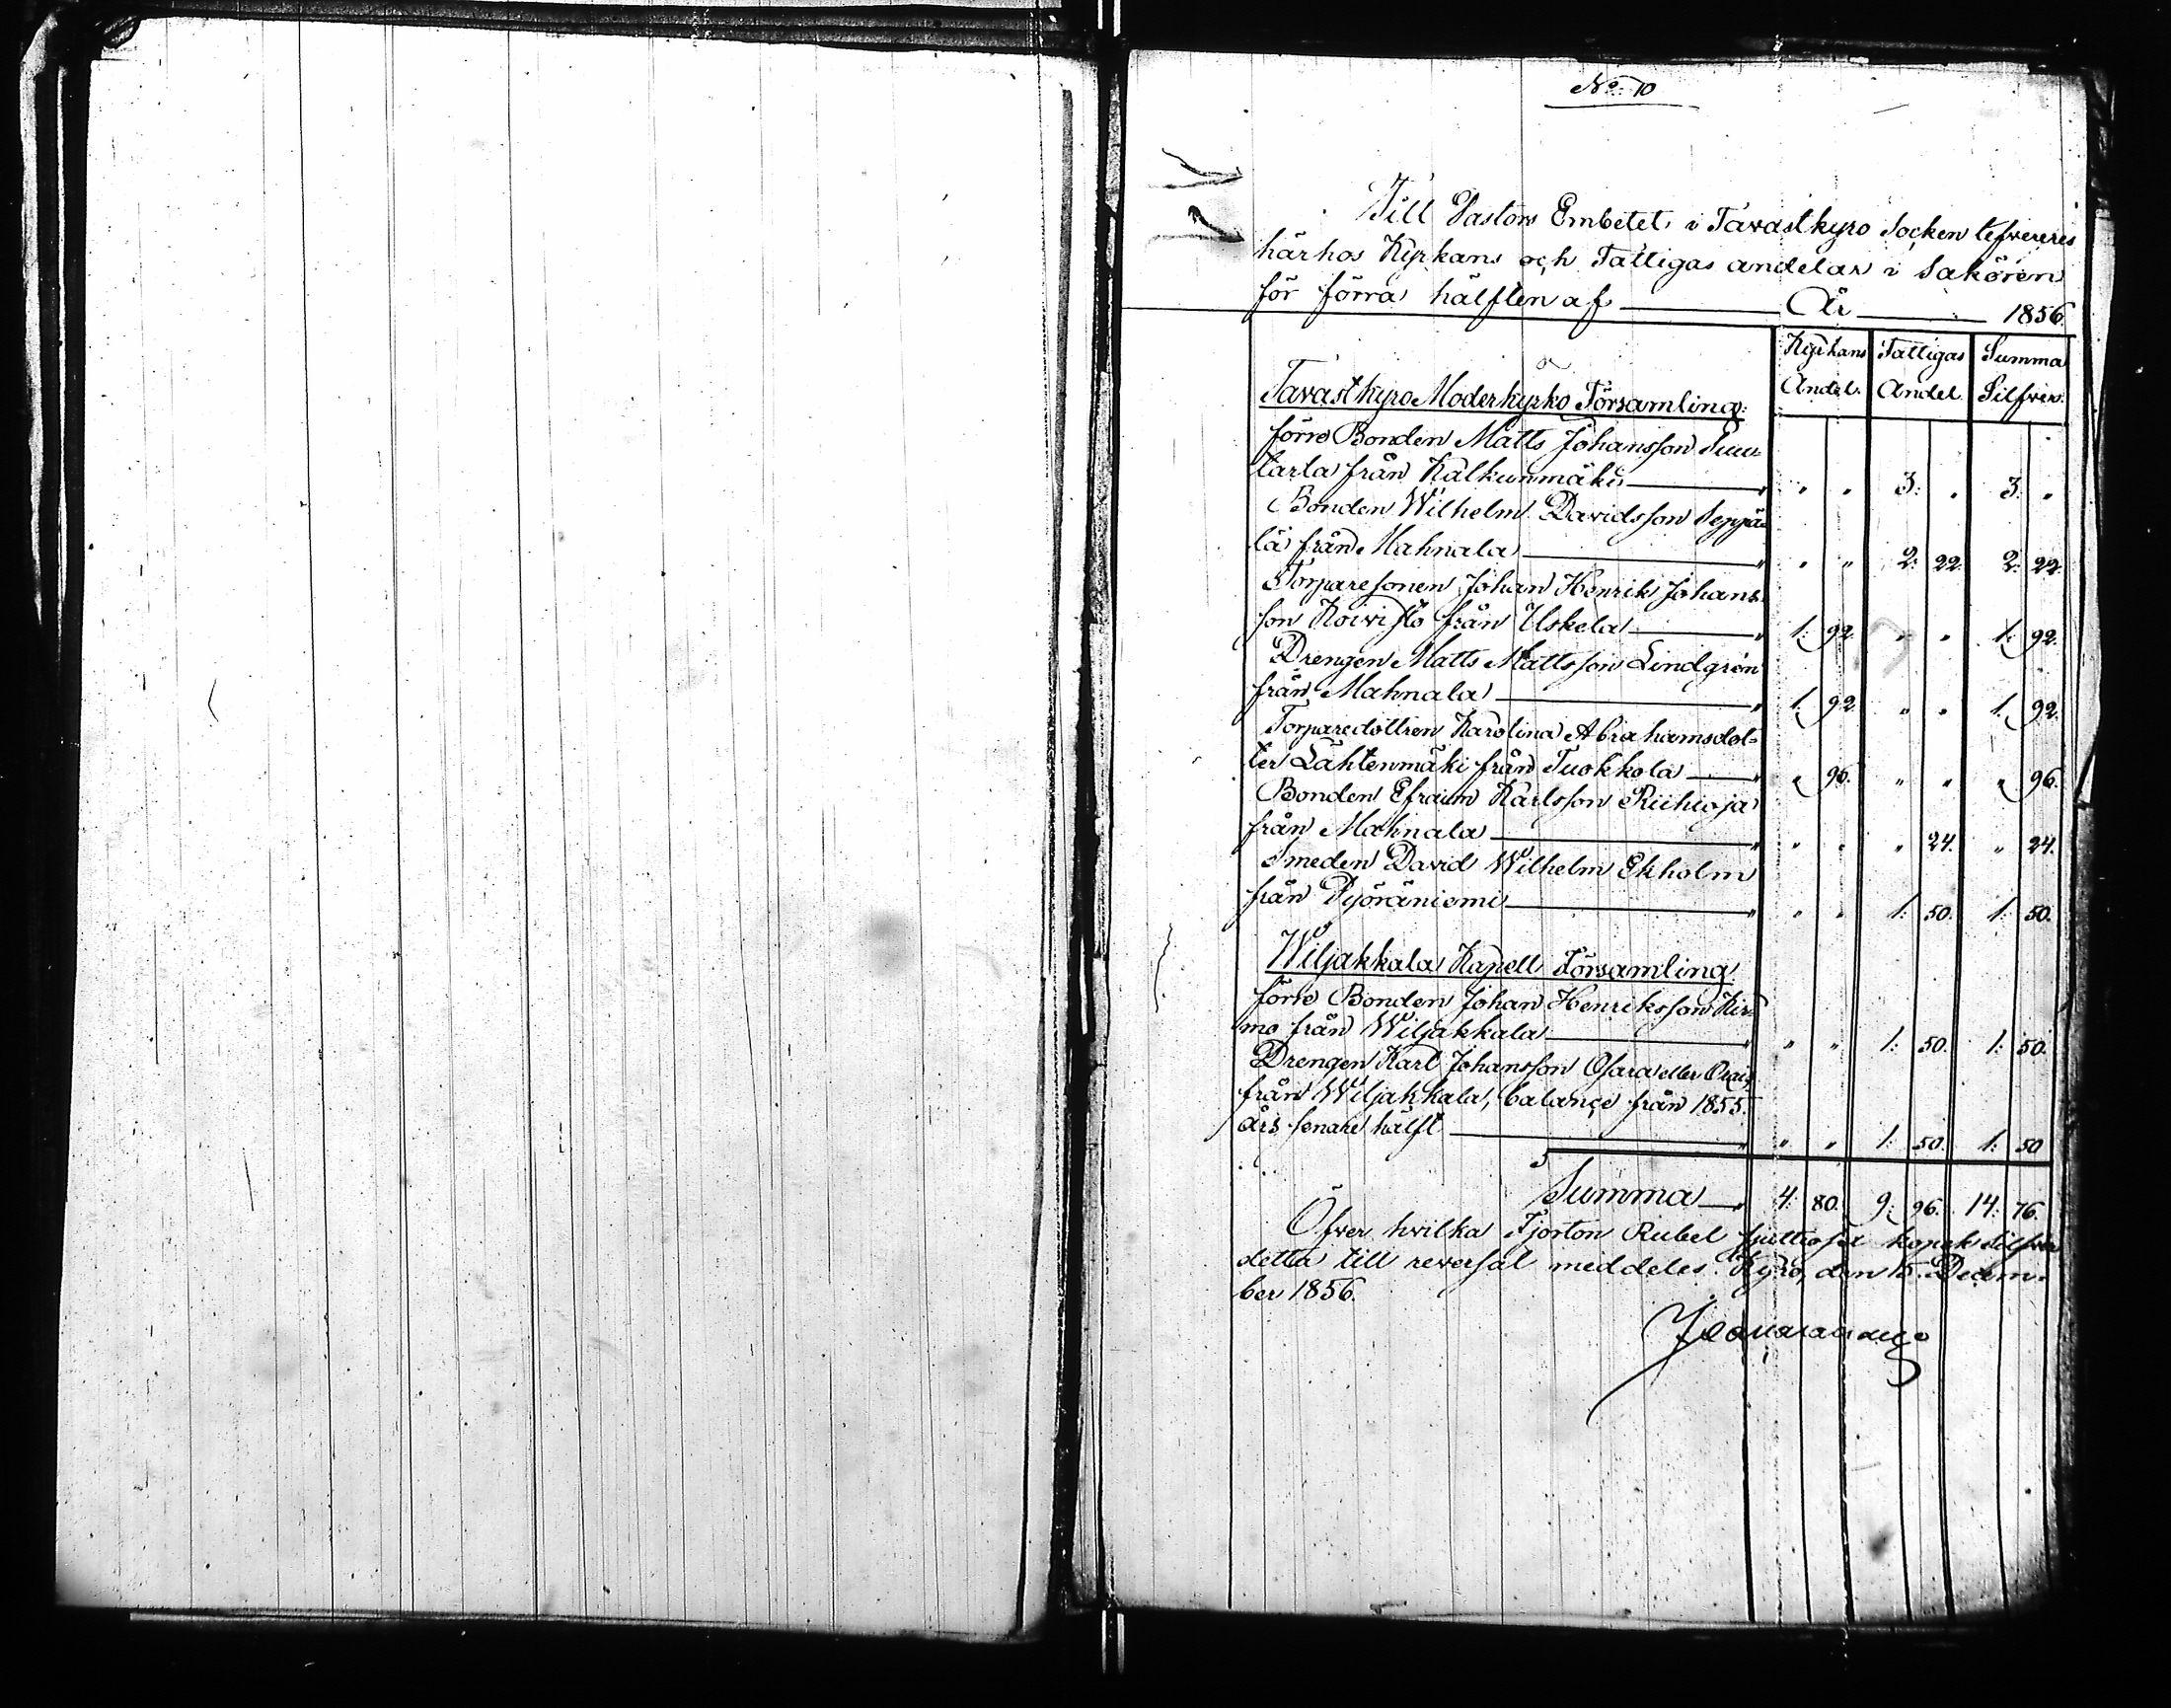 No 10
Till Pastors Embetet i Tavastkyro Socken lefvereres
härhos Kyrkans och Fattigas andelar i Sakören
för förra hälften af År 1856.
Kyrkans Andel. Fattigas Andel. Summa Silfver.
Tavastkyro Moderkyrko Församling:
förre Bonden Matts Johansson Suu-
tarla från Kalkunmäki " " " 3: " 3: "
Bonden Wilhelm Davidsson Seppä-
lä från Mahnala " " " 2: 22. 2: 22.
Torparesonen Johan Henrik Johans-
son Koivisto från Uskela " 1: 92. " " 1: 92.
Drengen Matts Mattsson Lindgrén
från Mahnala " 1: 92. " " 1: 92.
Torparedottren Karolina Abrahamsdot-
ter Lähtenmäki från Tuokkola " " 96. " " " 96.
Bonden Efraim Karlsson Riihioja
från Mahnala " " " " 24. " 24.
Smeden David Wilhelm Ekholm
från Pyöräniemi " " " 1: 50. 1: 50.
Wiljakkala Kapell Församling
förre Bonden Johan Henriksson
mo från Wiljakkala " " " 1: 50. 1: 50.
Drengen Karl Johansson Osara eller
från Wiljakkala, balance från 1855
års senare hälft " " " 1: 50. 1: 50
Summa " 4: 80. 9: 96. 14: 76.
Öfver hvilka Fjorton Rubel sjuttiosex kopek Silfver
detta till reversal meddeles. Kyro, den 15 Decem-
ber 1856.